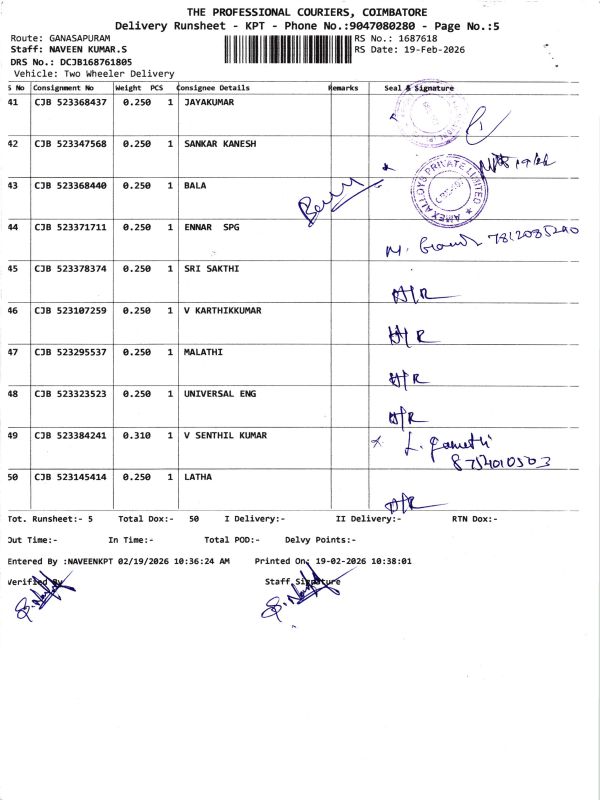 THE PROFESSIONAL COURIERS, COIMBATORE
Delivery Runsheet - KPT - Phone No.:9047080280 - Page No.:5
Route: GANASAPURAM RS No.: 1687618
Staff: NAVEEN KUMAR.S RS Date: 19-Feb-2026
DRS No.: DCJB168761805
Vehicle: Two Wheeler Delivery
S No Consignment No Weight PCS Consignee Details Remarks Seal & Signature
41 CJB 523368437 0.250 1 JAYAKUMAR
42 CJB 523347568 0.250 1 SANKAR KANESH
AMEX ALLOYS PRIVATE LIMITED
43 CJB 523368440 0.250 1 BALA
44 CJB 523371711 0.250 1 ENNAR SPG
M. 7812085290
45 CJB 523378374 0.250 1 SRI SAKTHI
H/R
46 CJB 523107259 0.250 1 V KARTHIKKUMAR
H/R
47 CJB 523295537 0.250 1 MALATHI
H/R
48 CJB 523323523 0.250 1 UNIVERSAL ENG
H/R
49 CJB 523384241 0.310 1 V SENTHIL KUMAR
8754010503
50 CJB 523145414 0.250 1 LATHA
H/R
Tot. Runsheet:- 5 Total Dox:- 50 I Delivery:- II Delivery:- RTN Dox:-
Out Time:- In Time:- Total POD:- Delvy Points:-
Entered By :NAVEENKPT 02/19/2026 10:36:24 AM Printed On: 19-02-2026 10:38:01
Verified By Staff Signature